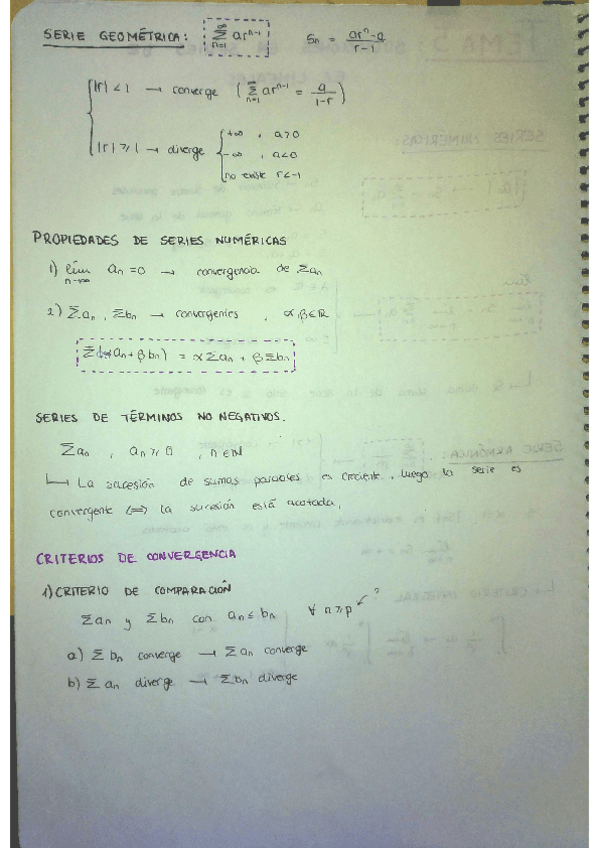 SERIE GEOMÉTRICA: ∞ Σ n=1 ar^(n-1) Sn = (ar^n - a)/(r-1)
|r| < 1 → converge (Σ n=1 ∞ ar^(n-1) = a/(1-r))
|r| ≥ 1 → diverge
+∞ , a>0
-∞ , a<0
no existe r<-1
PROPIEDADES DE SERIES NUMÉRICAS
1) lím n→∞ an = 0 → convergencia de Σan
2) Σan, Σbn → convergentes , α,β∈ℝ
Σ(αan + βbn) = αΣan + βΣbn
SERIES DE TÉRMINOS NO NEGATIVOS.
Σan , an ≥ 0 , n∈ℕ
↳ La sucesión de sumas parciales es creciente, luego la serie es
convergente ⟺ la sucesión está acotada.
CRITERIOS DE CONVERGENCIA
1) CRITERIO DE COMPARACIÓN
Σan y Σbn con an ≤ bn ∀ n ≥ p ?
a) Σbn converge → Σan converge
b) Σan diverge → Σbn diverge